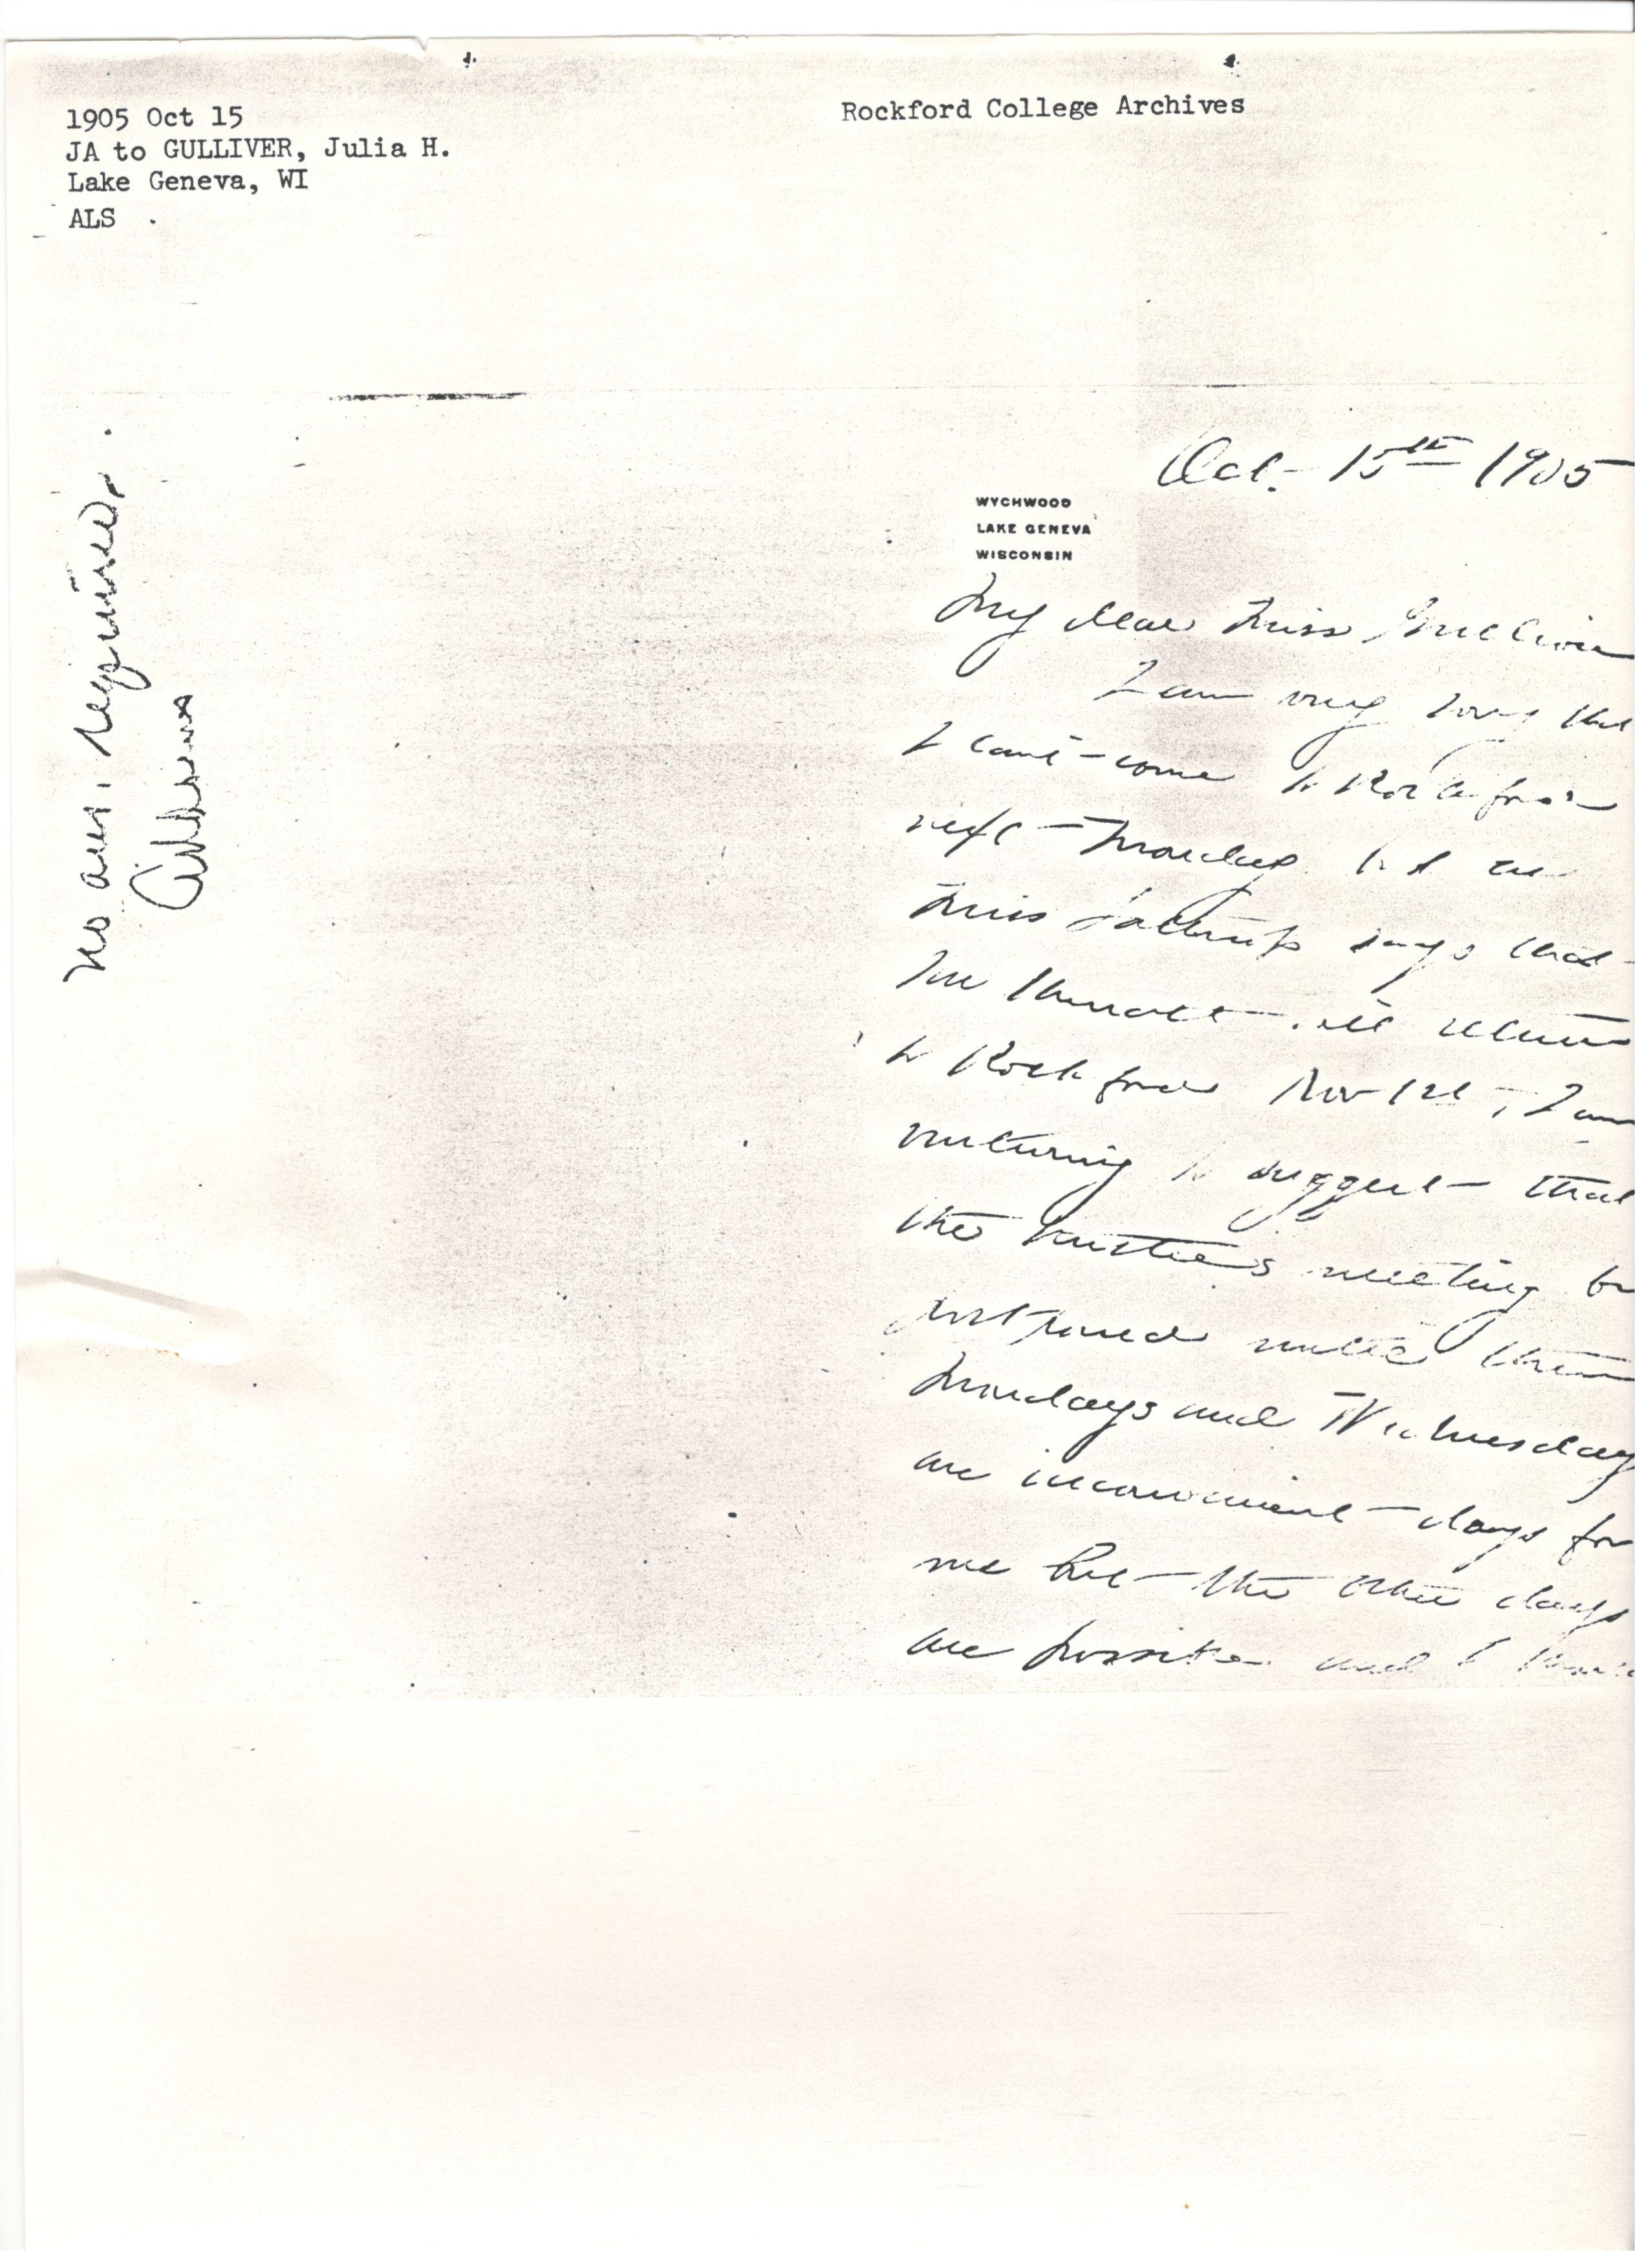 1905 Oct 15
JA to GULLIVER, Julia H.
Lake Geneva, WI
ALS
Rockford College Archives
no ans. required.
Oct. 15th 1905
WYCHWOOD
LAKE GENEVA
WISCONSIN
My dear Miss Gulliver
I am very sorry that
I can't come to Rockford
next Monday
Miss Lathrop says that
will return
to Rockford Nov 1st, I am
venturing to suggest that
the trustees meeting be
postponed until then
Mondays and Wednesday
are inconvenient days for
me but the other days
are possible and I